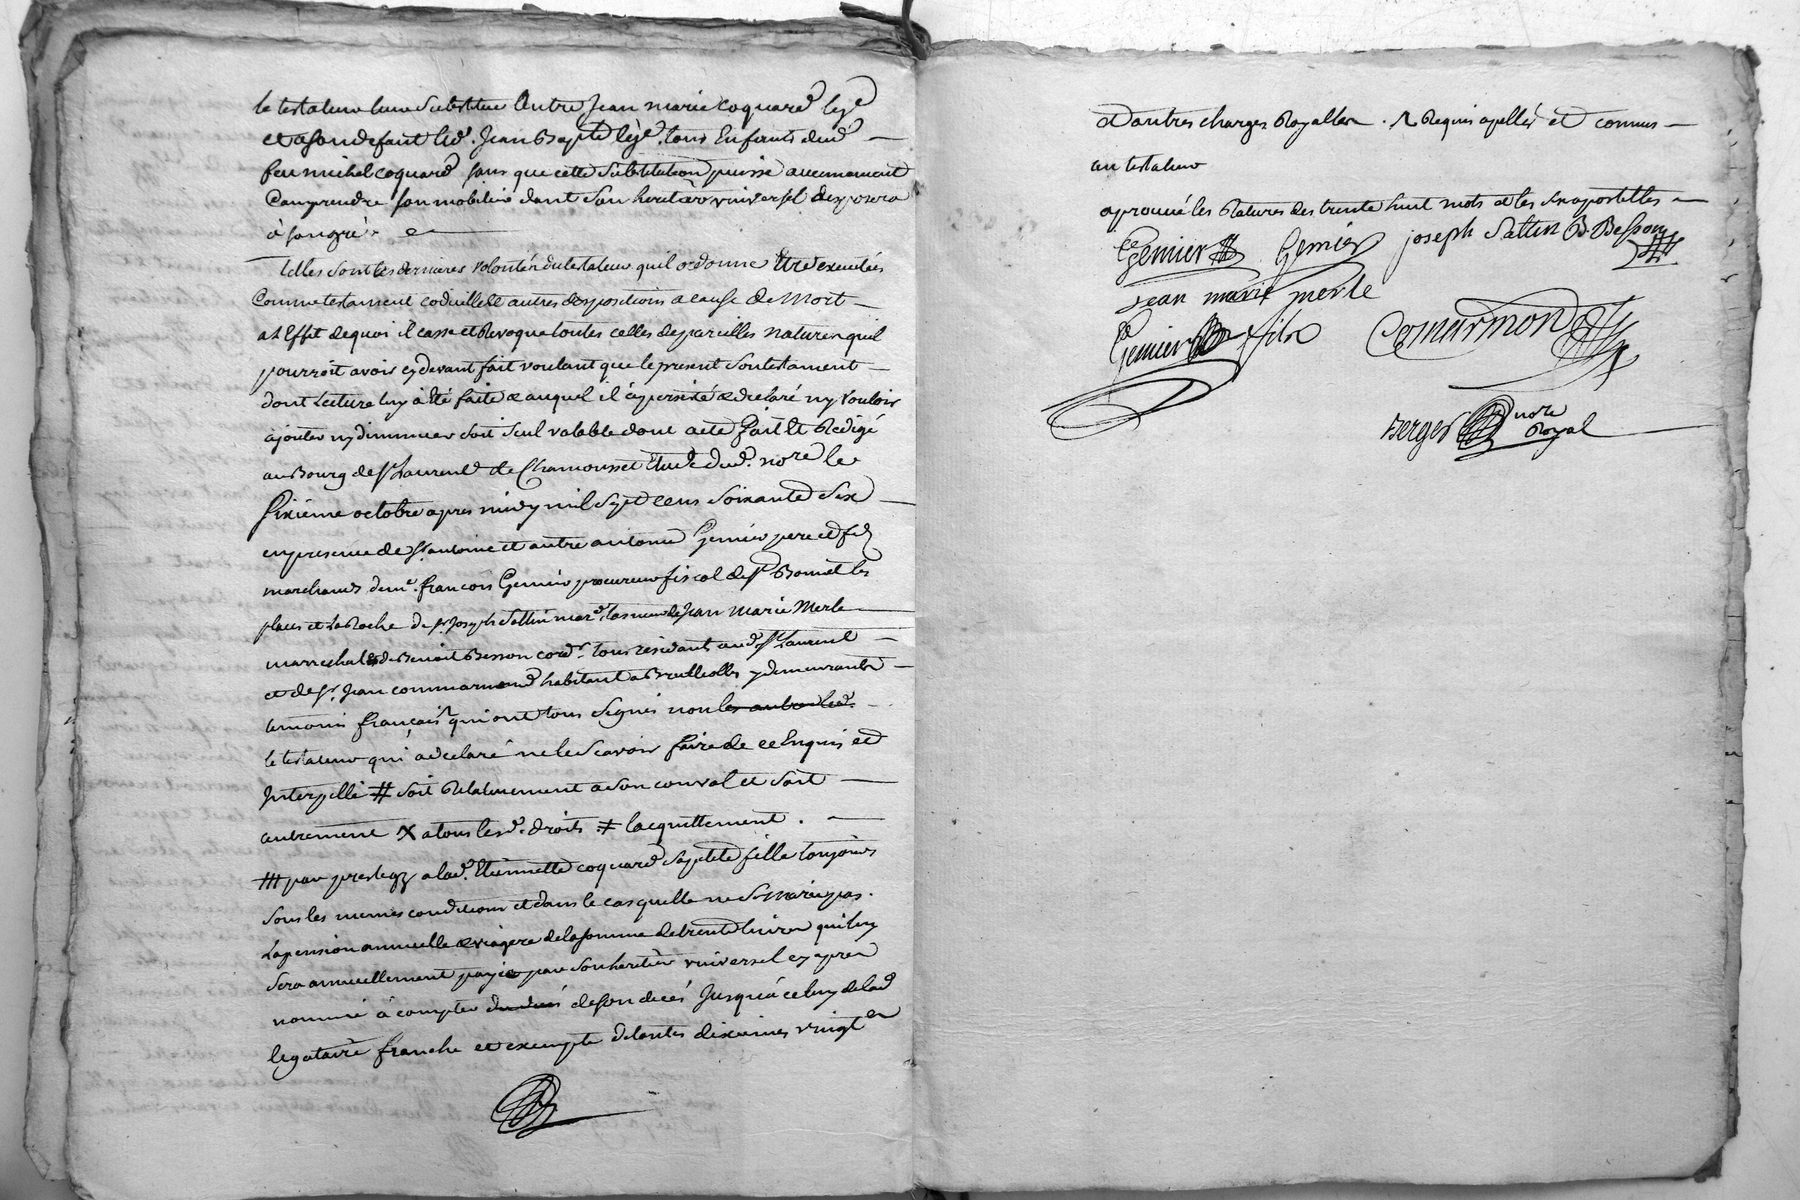 le testateur luy substitue autre Jean marie coquard leg.e
et a son defaut led. Jean Baptte lège. tous Enfants dud
feu michel coquard sans que cette substitution puisse aucunement
Comprendre son mobilier dont son heritier universel disposera
à son gré
telles sont les dernieres volontés du testateur quil ordonne Etre executées
Comme testament codicille et autres dispositions a cause de Mort
a L'Effet de quoi il casse et Revoque toutes celles de pareilles natures quil
pourroit avoir cy devant fait voulant que le present son testament
dont Lecture luy à Eté faite & auquel il à persisté & declaré n'y vouloir
ajouter ny diminuer soit seul valable dont acte fait Et Redigé
au Bourg de st Laurent de Chamousset Etude dud. nore le
sixième octobre apres midy mil sept cens soixante six
en presence de sr. antoine et autre antoine Gemier pere et fils
marchands de me. françois Gemier procureur fiscal de st Bonnet les
places et la Roche de sr. Joseph Sattin mard. tanneur de Jean Marie Merle
marechal & de Benoit Besson cordr. tous residants aud. st Laurent
et de sr. Jean commarmond habitant a Brullioles y demeurants
temoins français qui ont tous signés non les
le testateur qui a declaré ne le scavoir faire de ce Enquis et
Interpellé # soit Relativement a son convol et soit
autrement X a tous lesd. droits ≠ lacquittement.
# par prelegs a lad. Etiennette coquard sa petite fille toujours
sous les memes conditions et dans le cas quelle ne se marie pas.
La pension annuelle & viagere de la somme de trente livres qui luy
sera annuellement payée par son heritier universel cy apres
nommé à compter du deces de son decés Jusquà celuy de lad
legataire franche et exempte de toutes dixiemes vingt.es
et autres charges Royalles. Requis apellés et connus
au testateur
aprouvé les Ratures des trente huit mots et les six apostilles
Gemier Gemier joseph Sattin B. Besson
jean marie merle
Gemier fils Comarmond
Berger nore
Royal